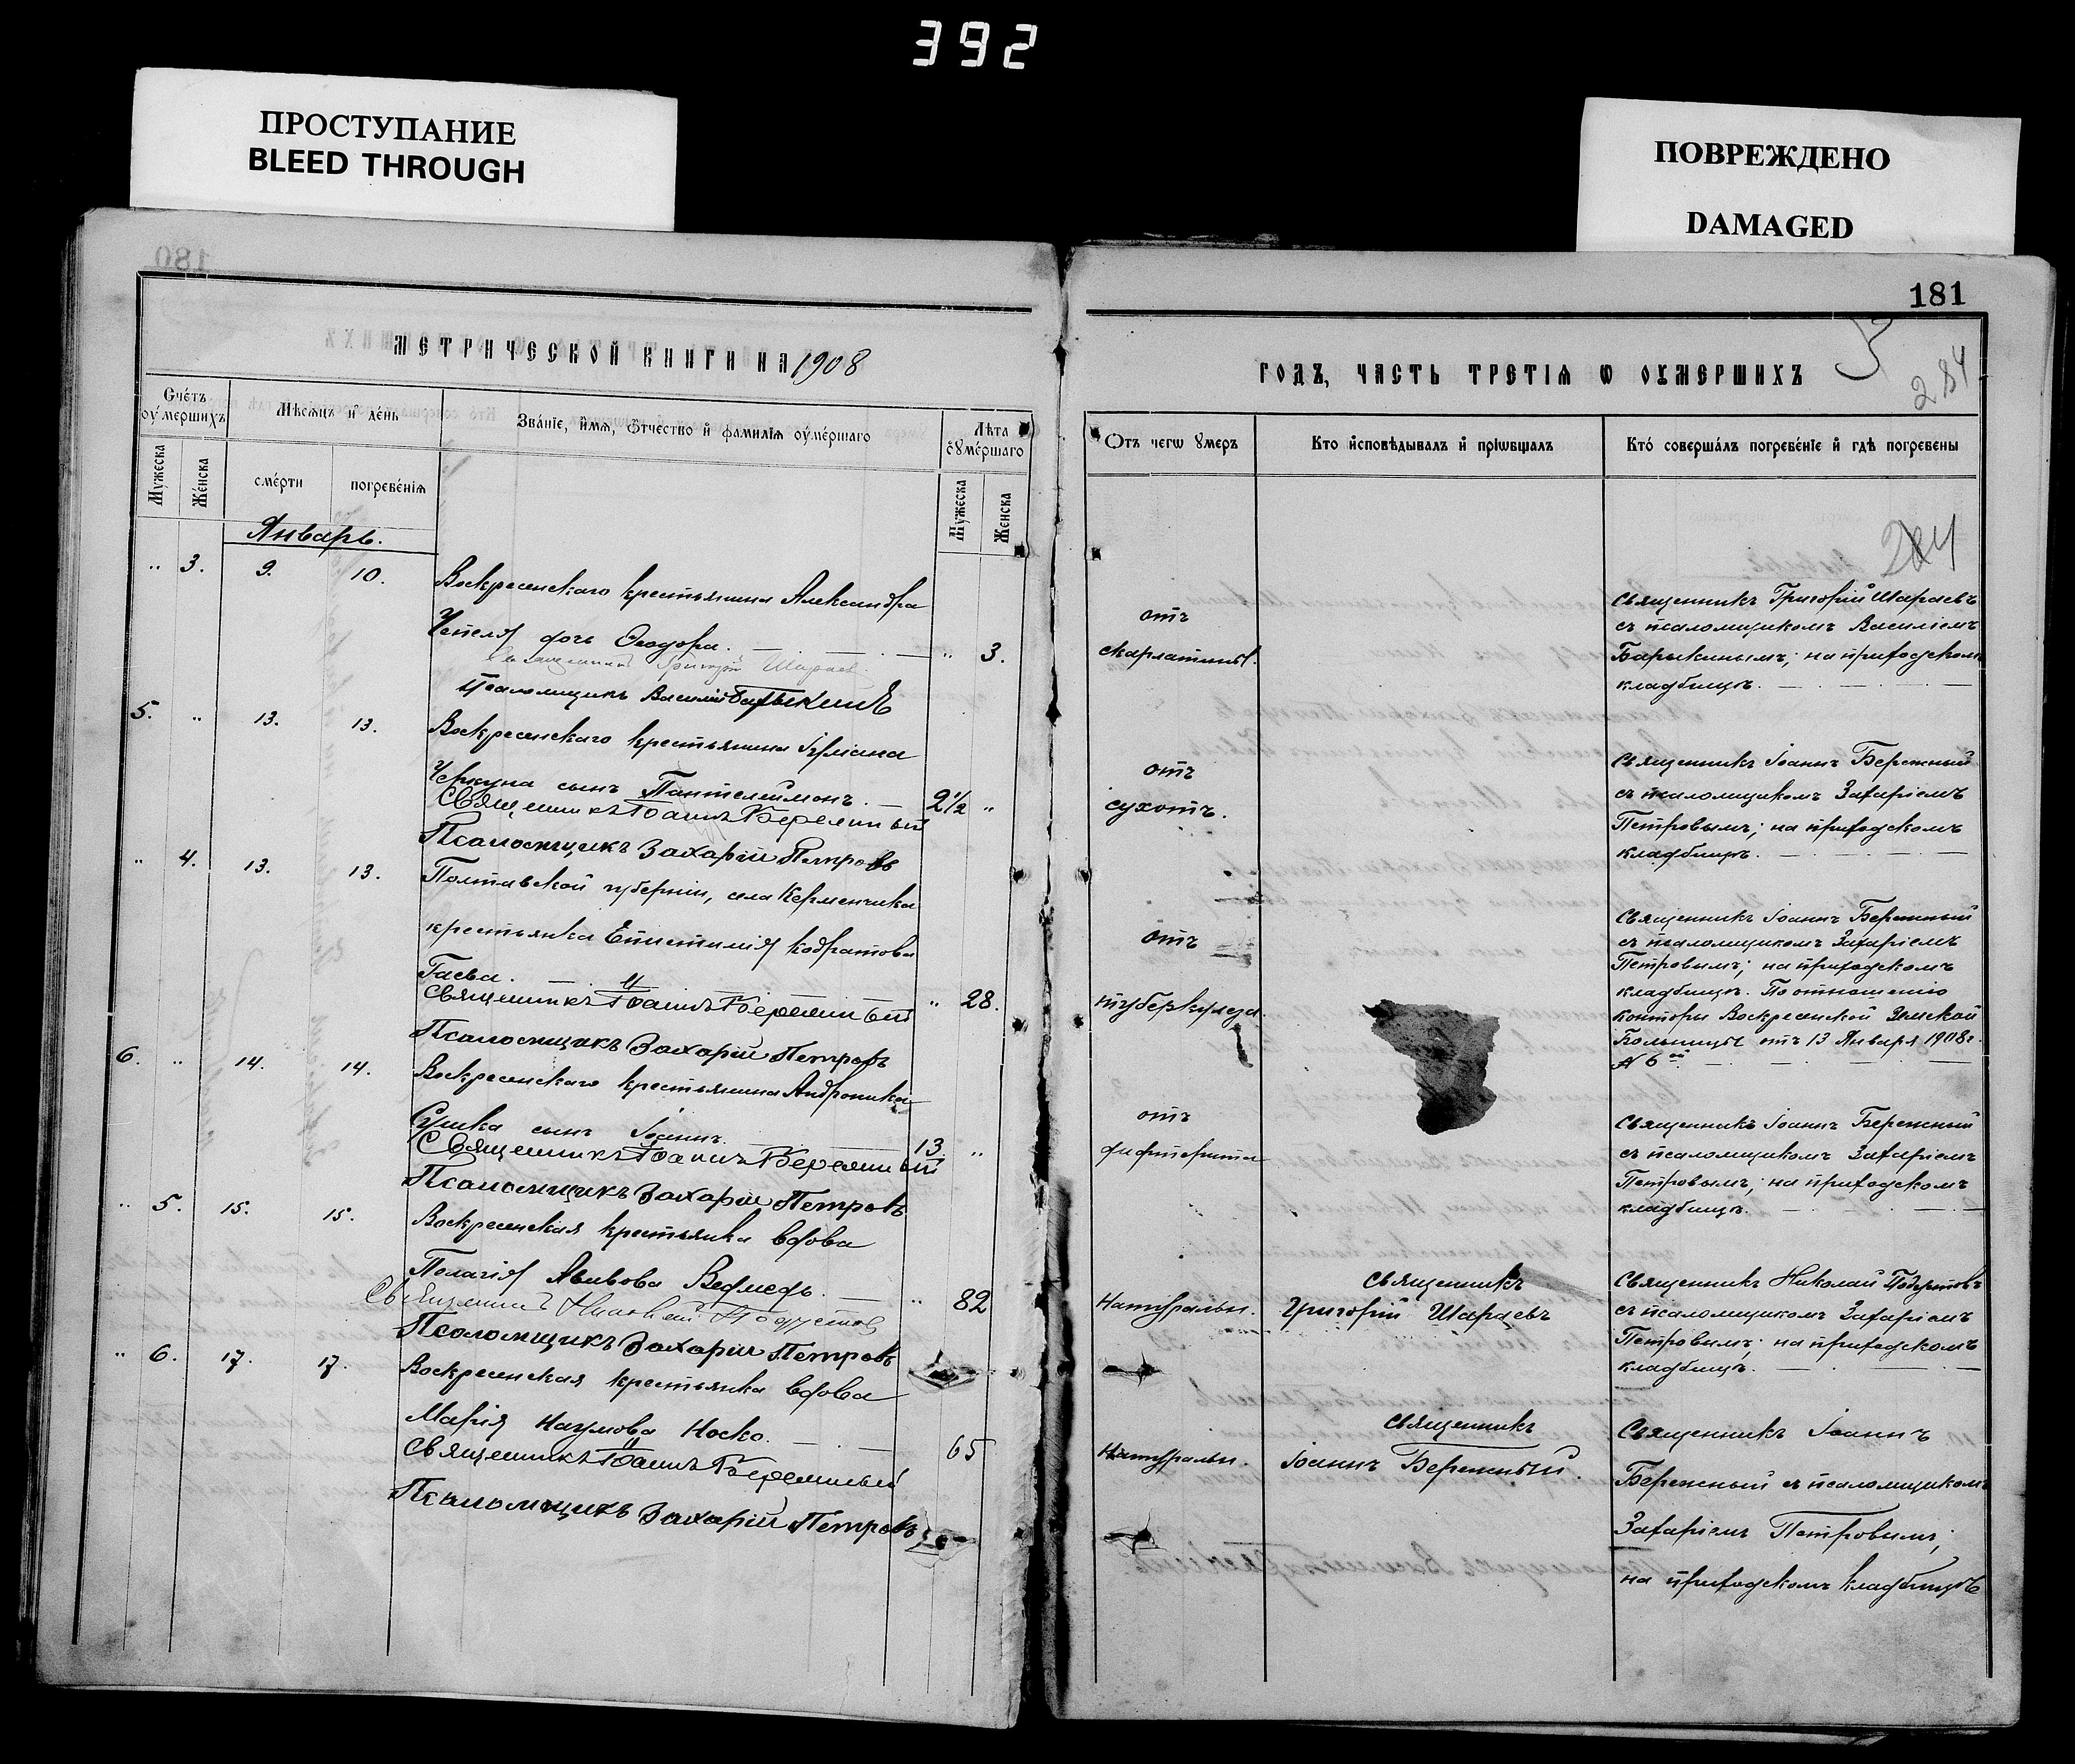 392
ПРОСТУПАНИЕ
BLEED THROUGH
ПОВРЕЖДЕНО
DAMAGED
180
181
МЕТРИЧЕСКОЙ КНИГИ НА 1908
ГОДЪ, ЧАСТЬ ТРЕТІЯ Ѡ ОУМЕРШИХЪ
284
Сче́тъ оу́мершихъ
Мѣсяцъ и де́нь
Зва́ніе, и́мя, ѻ́тчество и фами́лія оуме́ршаго
Лѣта оуме́ршаго
Отъ чегѡ оумеръ
Кто исповѣдывалъ и пріѡбщалъ
Кто́ соверша́лъ погребе́ніе и гдѣ погребены
Мужеска
Женска
сме́рти
погребе́нія
Мужеска
Женска
Январь.
284
" 3. 9. 10.
Воскресенскаго крестьянина Александра
Чепеля дочь Ѳеодора. " 3.
Священникъ Григорій Шараевъ
Псаломщикъ Василій Барыкинъ
отъ
скарлатины.
Священникъ Григорій Шараевъ
съ псаломщикомъ Василіемъ
Барыкинымъ; на приходскомъ
кладбищѣ.
5. " 13. 13.
Воскресенскаго крестьянина Германа
Черкуна сынъ Пантелеймонъ. 2½ "
Священникъ Іоаннъ Бережный
Псаломщикъ Захарій Петровъ
отъ
сухотъ.
Священникъ Іоаннъ Бережный
съ псаломщикомъ Захаріемъ
Петровымъ; на приходскомъ
кладбищѣ.
" 4. 13. 13.
Полтавской губерніи, села Керменчика
крестьянка Епистимія Кодратова
Гаева.
Священникъ Іоаннъ Бережный " 28.
Псаломщикъ Захарій Петровъ
отъ
туберкулеза.
Священникъ Іоаннъ Бережный
съ псаломщикомъ Захаріемъ
Петровымъ; на приходскомъ
кладбищѣ. По отношенію
конторы Воскресенской Земской
Больницы отъ 13 Января 1908 г.
№ 6
6. " 14. 14.
Воскресенскаго крестьянина Андроника
Сушка сынъ Іоаннъ. 13. "
Священникъ Іоаннъ Бережный
Псаломщикъ Захарій Петровъ
отъ
дифтерита
Священникъ Іоаннъ Бережный
съ псаломщикомъ Захаріемъ
Петровымъ; на приходскомъ
кладбищѣ.
" 5. 15. 15.
Воскресенская крестьянка вдова
Пелагія Авивова Ведмедь. " 82
Священникъ Николай
Псаломщикъ Захарій Петровъ
Натуральн.
Священникъ
Григорій Шараевъ
Священникъ Николай
съ псаломщикомъ Захаріемъ
Петровымъ; на приходскомъ
кладбищѣ.
" 6. 17. 17.
Воскресенская крестьянка вдова
Марія Наумова Носко. 65
Священникъ Іоаннъ Бережный
Псаломщикъ Захарій Петровъ
Натуральн.
Священникъ
Іоаннъ Бережный.
Священникъ Іоаннъ
Бережный съ псаломщикомъ
Захаріемъ Петровымъ;
на приходскомъ кладбищѣ